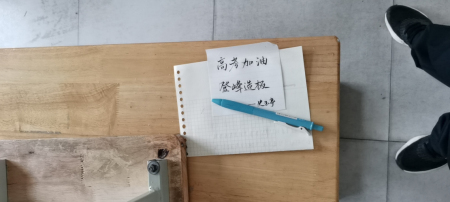 高考加油
登峰造极